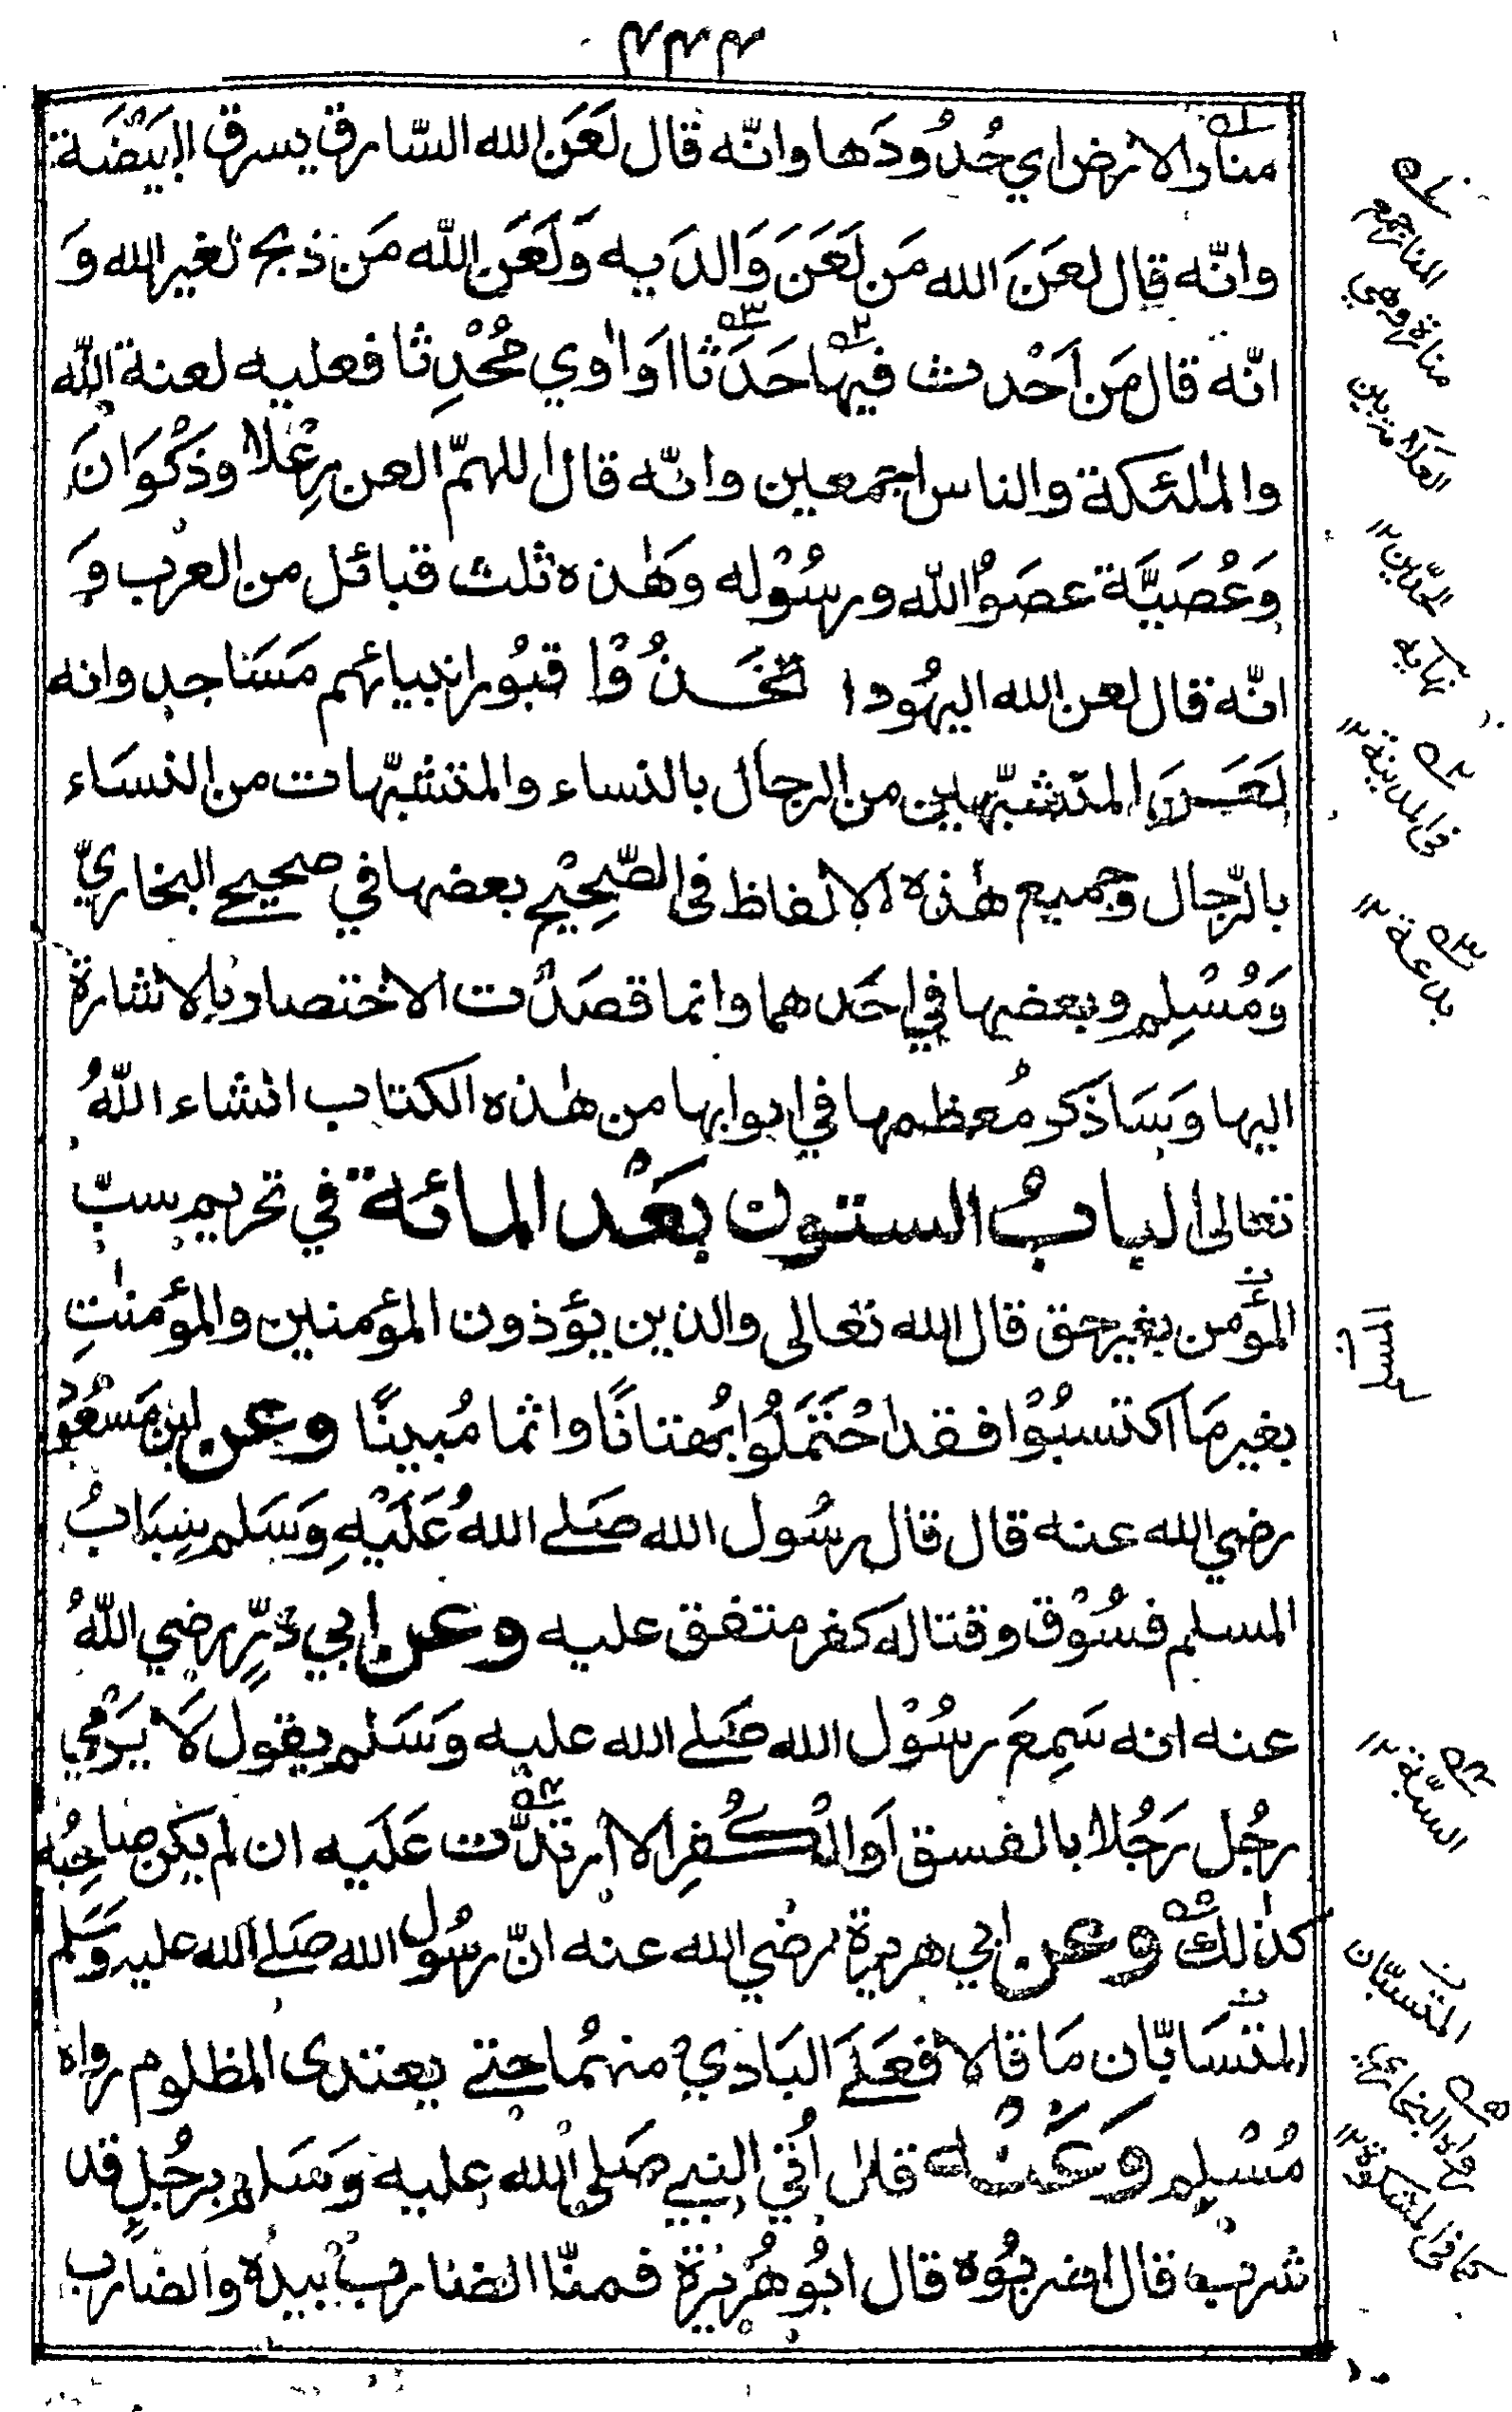 ۳۳۳
منار الارض اي حُدُودَها وانّه قال لَعَنَ الله السّارق يسرق البَيْضَة
وانّه قال لعَنَ الله مَن لَعَنَ وَالدَيه وَلَعَنَ الله مَن ذبح لغير الله وَ
انّه قال مَن اَحْدث فيها حَدَثا اَو اٰوي مُحْدِثا فعليه لعنة الله
والملٰئكة والناس اجمعين وانّه قال اللهمّ العن رِعْلا وذَكْوَانَ
وَعُصَيَّة عصَوُا الله ورسُوْله وهٰذه ثلث قبائل من العرب وَ
انّه قال لعن الله اليهُود اتّخَذُوْا قبُور انبيائهم مَسَاجد وانه
لَعَنَ المتشبّهين من الرجال بالنساء والمتشبّهات من النسَاء
بالرّجال وجميع هٰذه الالفاظ في الصّحِيْح بعضها في صحيح البخاريّ
وَمُسْلِم وبعضها في احَدهما وانما قصَدْت الاختصار بالاشارة
اليها وَسَاَذكر مُعظمها في ابوابها من هٰذه الكتاب انشاء اللهُ
تعالى البابُ الستون بَعْد المائة في تحريم سبّ
المؤمن بغير حق قال الله تعالى والذين يؤذون المؤمنين والمؤمنٰتِ
بغير مَا اكتسبُوْا فقد احْتَمَلُوا بُهتانًا واثما مُبينًا وعن ابن مَسْعُوْد
رضي الله عنه قال قال رسُول الله صَلے اللهُ عَلَيْهِ وَسَلم سِبَابُ
المسلم فسُوْق وقتاله كفر متفق عليه وعن ابي ذرٍّ رضي اللهُ
عنه انه سَمِعَ رسُوْل الله صَلے الله عليه وَسَلم يقول لَا يَرْمي
رجُل رَجُلا بالفسق اَو الْكُفر الا ارتدّت عَلَيه ان لم يكن صَاحِبُه
كذٰلك وعن ابي هريرة رضي الله عنه انّ رسُول الله صَلے الله عليه وَسَلم
المتسَابّان مَا قالا فعَلَے البَادي منهُما حتے يعتدى المظلوم رواه
مُسْلِم وَعَنْه قال اُتي النبے صَلى الله عليه وَسَلم برجُلٍ قد
شرب قال اضربُوْه قال ابُو هُرَيْرَة فمنّا الضارب بيده والضارب
المنار جمع
منارة وهي
العلامة بين
الحدّين ۱۲
نهايه
في المدينة ۱۲
بدعة ۱۲
السبّة ۱۲
المتسبّان
رواه البخاري
كما في المشكوة ۱۲